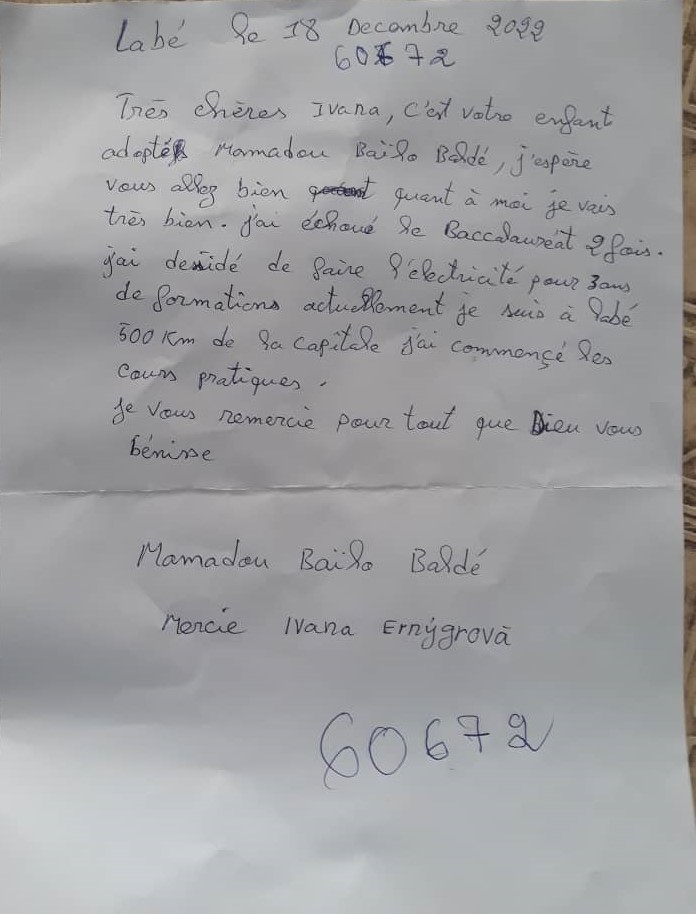 Labé le 18 Decembre 2022
60672
Très chères Ivana, c'est votre enfant
adopté Mamadou Baïlo Baldé, j'espère
vous allez bien quant à moi je vais
très bien. j'ai échoué le Baccalauréat 2 fois.
j'ai desidé de faire l'électricité pour 3 ans
de formations actuellement je suis à labé
500 Km de la capitale j'ai commençé les
cours pratiques.
je vous remercie pour tout que Dieu vous
bénisse
Mamadou Baïlo Baldé
Mercie Ivana Ernýgrovā
60672